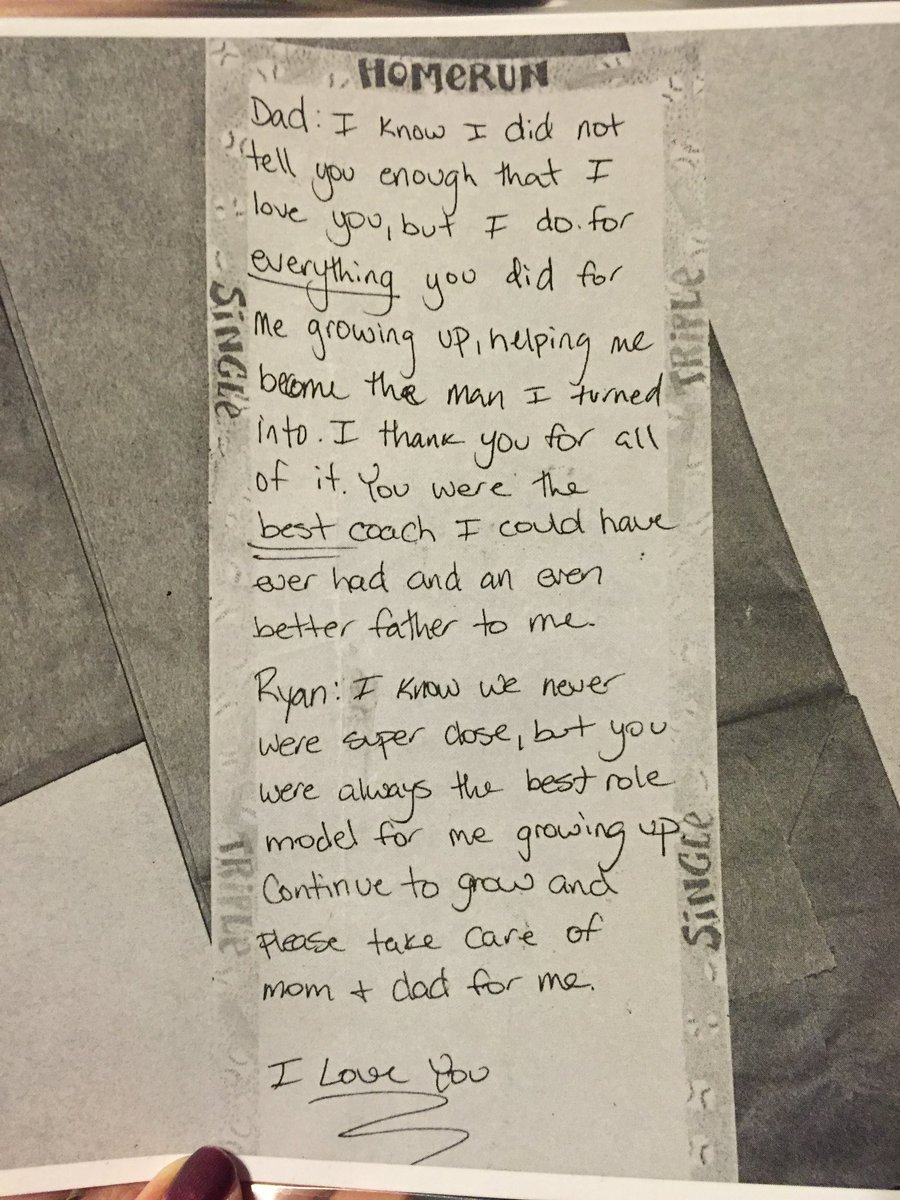 HOMERUN
Dad: I know I did not
tell you enough that I
love you, but I do. for
everything you did for
me growing up, helping me
become the man I turned
into. I thank you for all
of it. You were the
best coach I could have
ever had and an even
better father to me.
Ryan: I know we never
were super close, but you
were always the best role
model for me growing up.
Continue to grow and
please take care of
mom + dad for me.
I Love You
SINGLE
TRIPLE
TRIPLE
SINGLE